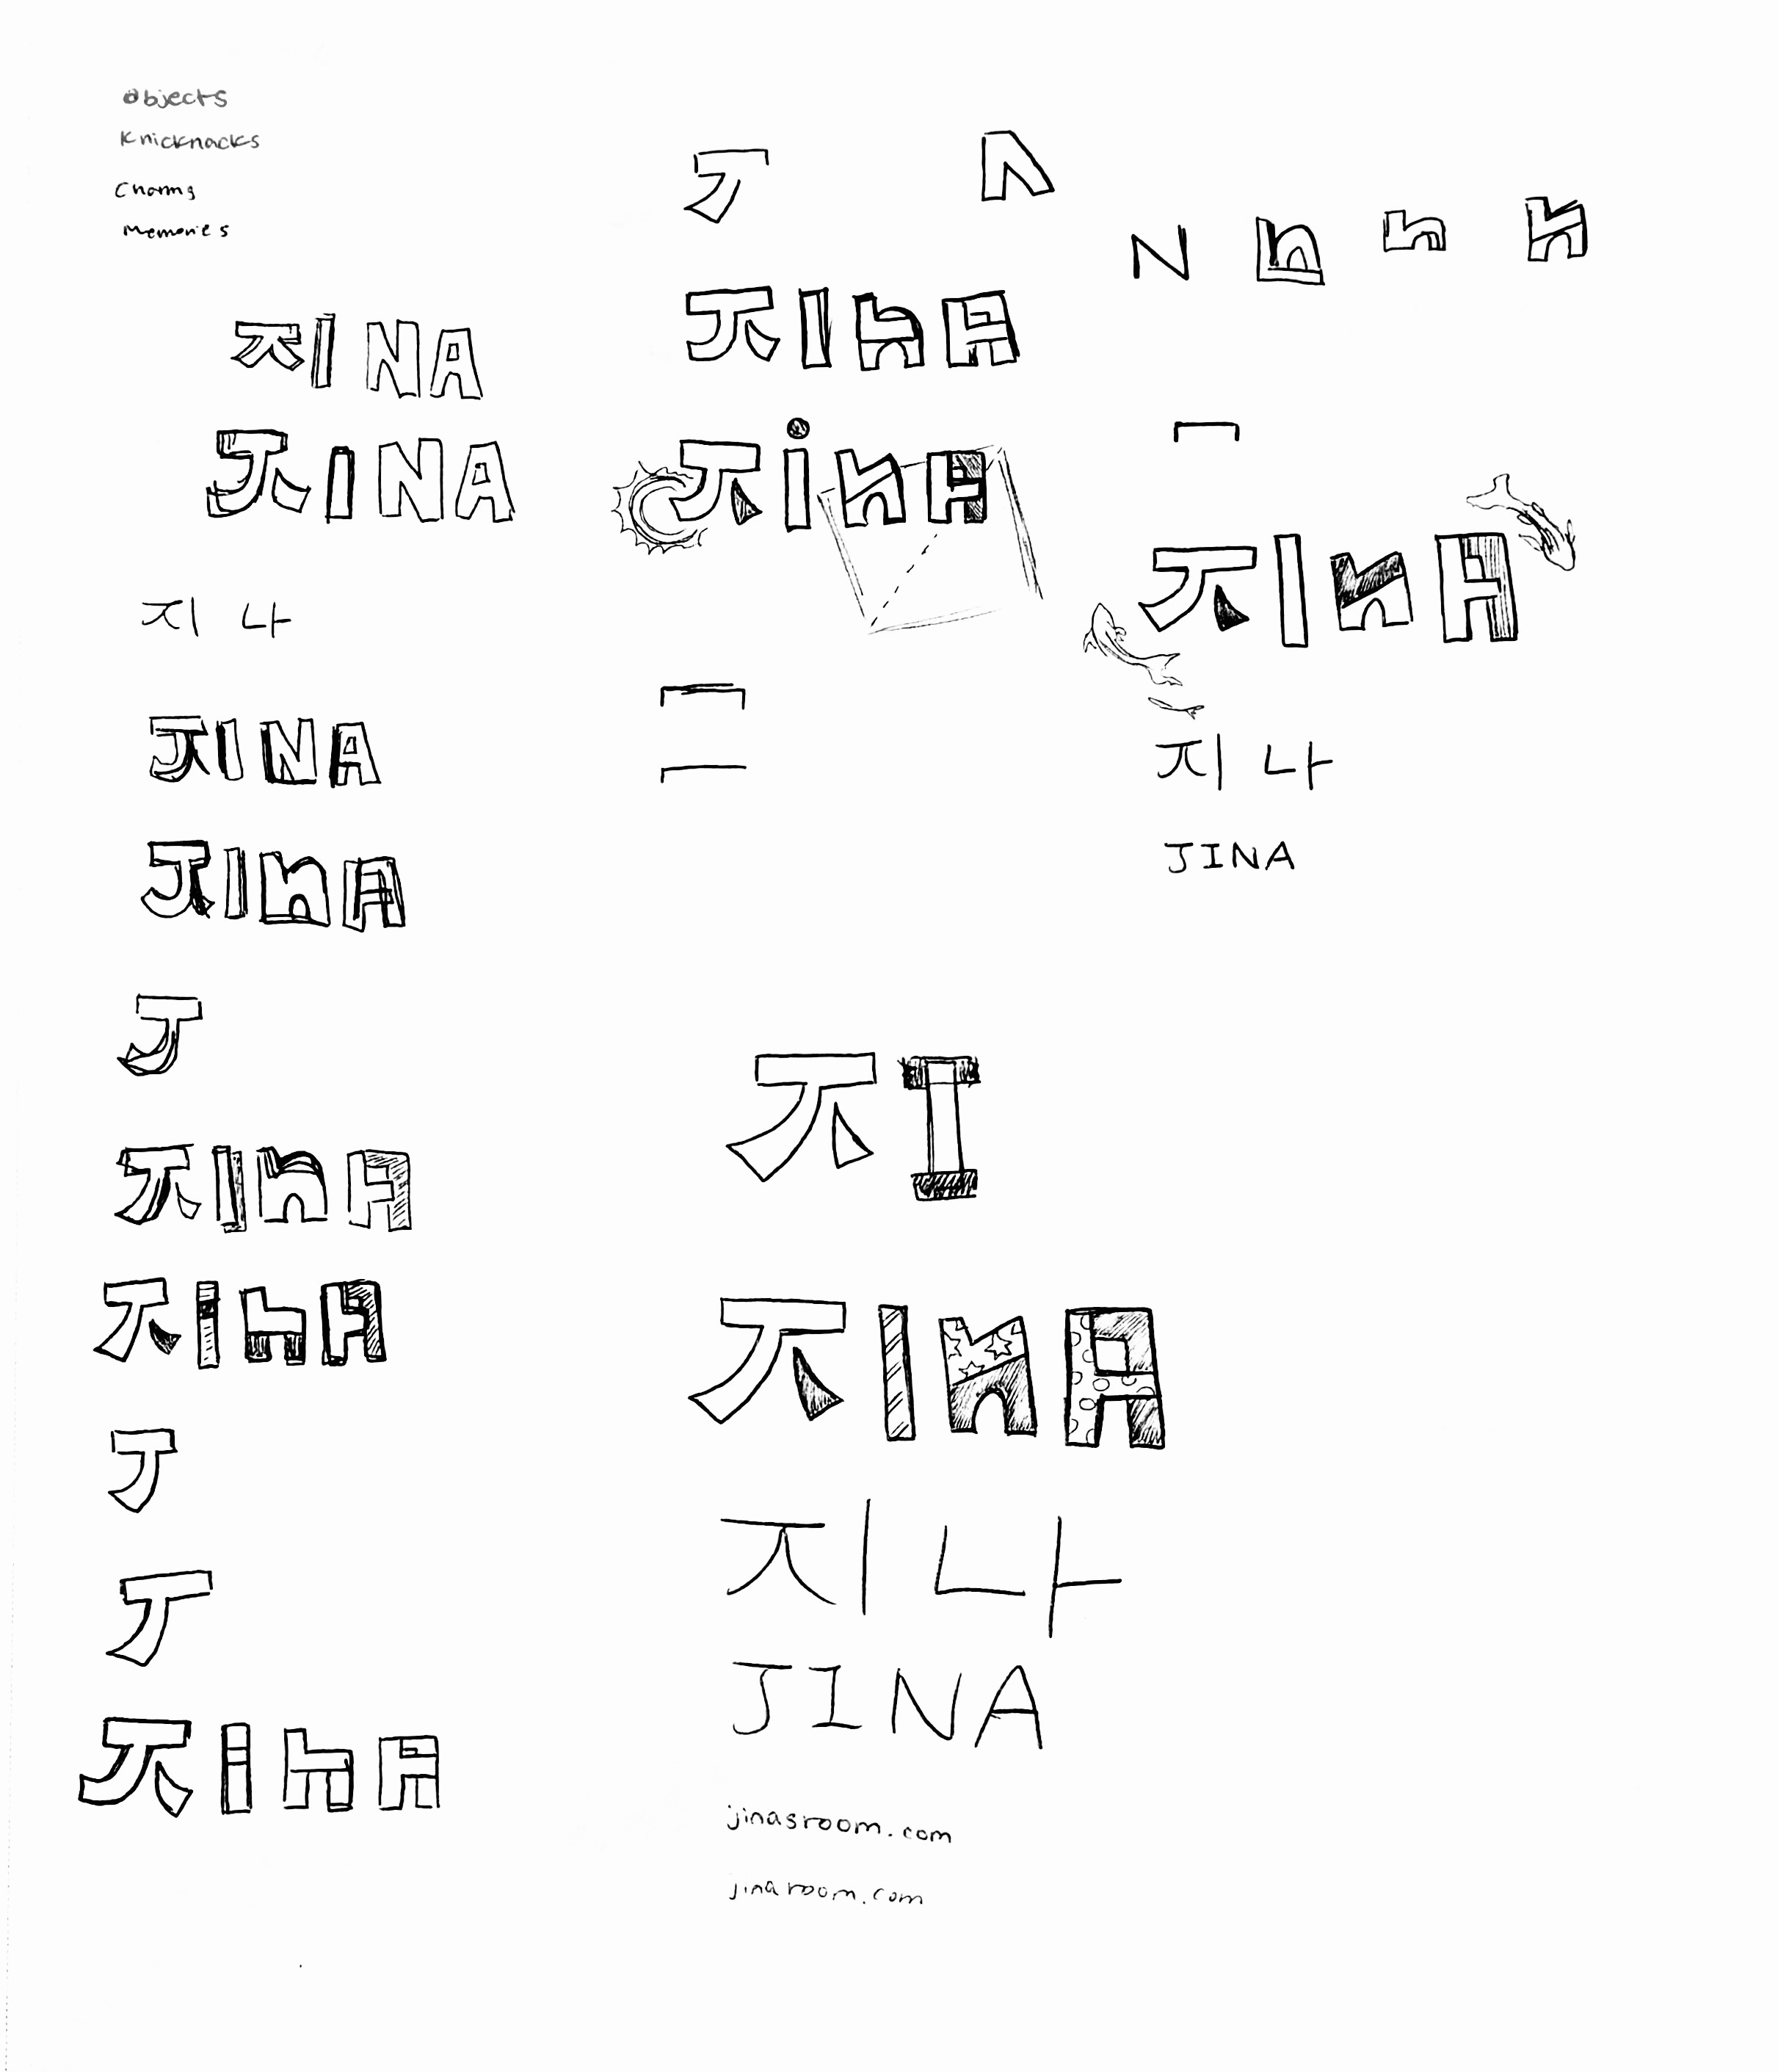 Objects
Knicknacks
Charms
Memories
지INA
JINA
지 나
JINA
JINA
J
JINA
JINA
J
J
JINA
J
JINA
JINA
N n n n
JINA
지 나
JINA
지I
JINA
지 나
JINA
jinasroom.com
jinaroom.com